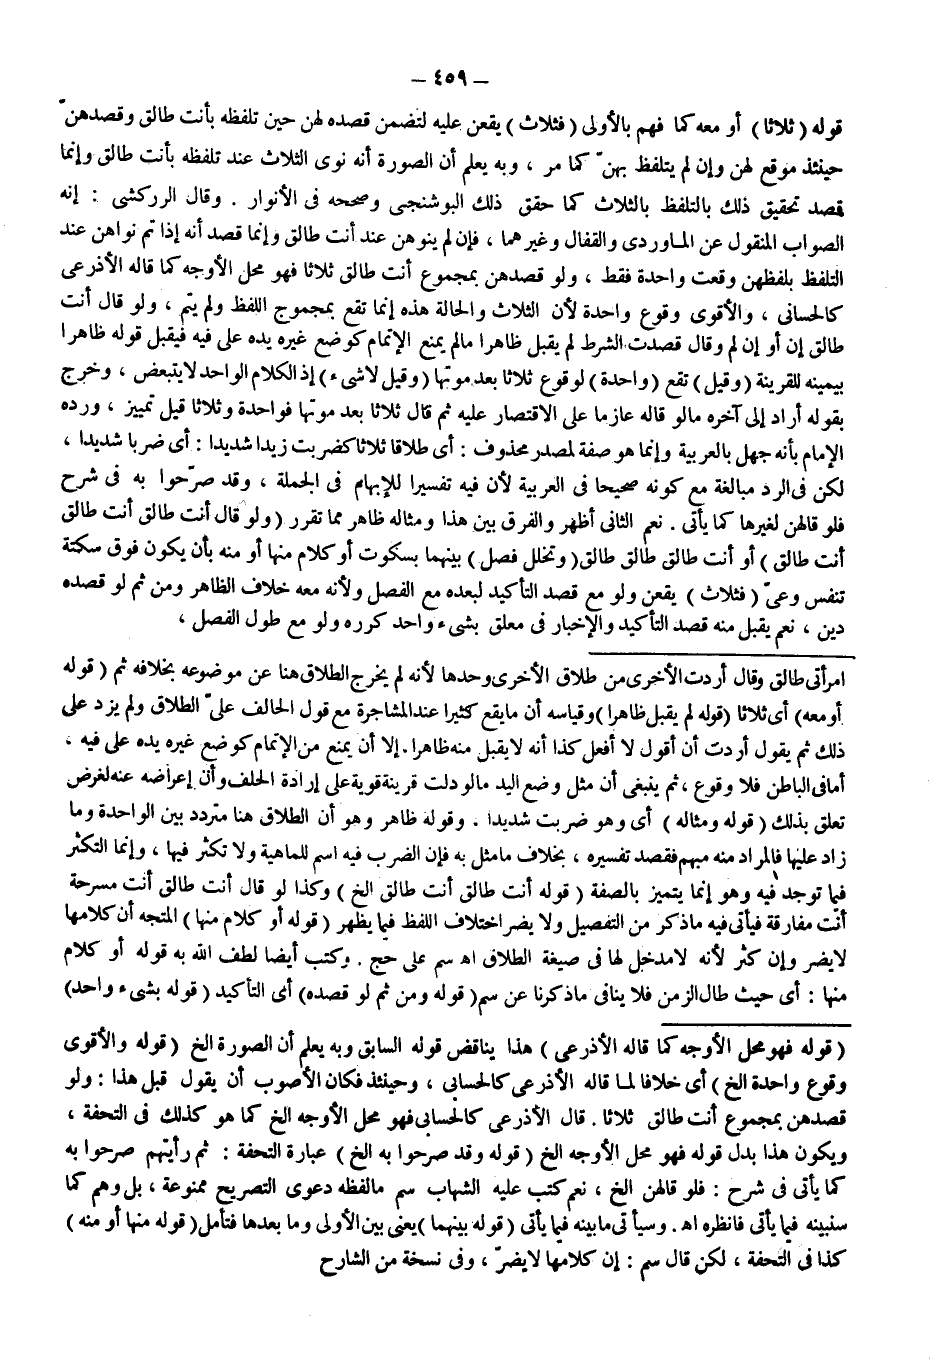 — ٤٥٩ —
قوله (ثلاثا) أو معه كما فهم بالأولى (فثلاث) يقعن عليه لتضمن قصده لهن حين تلفظه بأنت طالق وقصدهنّ
حينئذ موقع لهن وإن لم يتلفظ بهنّ كما مر ، وبه يعلم أن الصورة أنه نوى الثلاث عند تلفظه بأنت طالق وإنما
قصد تحقيق ذلك بالتلفظ بالثلاث كما حقق ذلك البوشنجى وصححه فى الأنوار . وقال الزركشى : إنه
الصواب المنقول عن الماوردى والقفال وغيرهما ، فإن لم ينوهن عند أنت طالق وإنما قصد أنه إذا تم نواهن عند
التلفظ بلفظهن وقعت واحدة فقط ، ولو قصدهن بمجموع أنت طالق ثلاثا فهو محل الأوجه كما قاله الأذرعى
كالحسبانى ، والأقوى وقوع واحدة لأن الثلاث والحالة هذه إنما تقع بمجموج اللفظ ولم يتم ، ولو قال أنت
طالق إن أو إن لم وقال قصدت الشرط لم يقبل ظاهرا مالم يمنع الإتمام كوضع غيره يده على فيه فيقبل قوله ظاهرا
بيمينه للقرينة (وقيل) تقع (واحدة) لوقوع ثلاثا بعد موتها (وقيل لاشىء) إذ الكلام الواحد لايتبعض ، وخرج
بقوله أراد إلى آخره مالو قاله عازما على الاقتصار عليه ثم قال ثلاثا بعد موتها فواحدة وثلاثا قيل تمييز ، ورده
الإمام بأنه جهل بالعربية وإنما هو صفة لمصدر محذوف : أى طلاقا ثلاثا كضربت زيدا شديدا : أى ضربا شديدا ،
لكن فى الرد مبالغة مع كونه صحيحا فى العربية لأن فيه تفسيرا للإبهام فى الجملة ، وقد صرّحوا به فى شرح
فلو قالهن لغيرها كما يأتى . نعم الثانى أظهر والفرق بين هذا ومثاله ظاهر مما تقرر (ولو قال أنت طالق أنت طالق
أنت طالق) أو أنت طالق طالق طالق (وتخلل فصل) بينهما بسكوت أو كلام منها أو منه بأن يكون فوق سكتة
تنفس وعىّ (فثلاث) يقعن ولو مع قصد التأكيد لبعده مع الفصل ولأنه معه خلاف الظاهر ومن ثم لو قصده
دين ، نعم يقبل منه قصد التأكيد والإخبار فى معلق بشىء واحد كرره ولو مع طول الفصل ،
امرأتى طالق وقال أردت الأخرى من طلاق الأخرى وحدها لأنه لم يخرج الطلاق هنا عن موضوعه بخلافه ثم (قوله
أو معه) أى ثلاثا (قوله لم يقبل ظاهرا) وقياسه أن مايقع كثيرا عند المشاجرة مع قول الحالف علىّ الطلاق ولم يزد على
ذلك ثم يقول أردت أن أقول لا أفعل كذا أنه لايقبل منه ظاهرا . إلا أن يمنع من الإتمام كوضع غيره يده على فيه ،
أما فى الباطن فلا وقوع ، ثم ينبغى أن مثل وضع اليد مالو دلت قرينة قوية على إرادة الحلف وأن إعراضه عنه لغرض
تعلق بذلك (قوله ومثاله) أى وهو ضربت شديدا . وقوله ظاهر وهو أن الطلاق هنا متردد بين الواحدة وما
زاد عليها فالمراد منه مبهم فقصد تفسيره ، بخلاف مامثل به فإن الضرب فيه اسم للماهية ولا تكثر فيها ، وإنما التكثر
فيما توجد فيه وهو إنما يتميز بالصفة (قوله أنت طالق أنت طالق الخ) وكذا لو قال أنت طالق أنت مسرحة
أنت مفارقة فيأتى فيه ماذكر من التفصيل ولا يضر اختلاف اللفظ فيما يظهر (قوله أو كلام منها) المتجه أن كلامها
لايضر وإن كثر لأنه لامدخل لها فى صيغة الطلاق اه سم على حج . وكتب أيضا لطف الله به قوله أو كلام
منها : أى حيث طال الزمن فلا ينافى ماذكرنا عن سم (قوله ومن ثم لو قصده) أى التأكيد (قوله بشىء واحد)
(قوله فهو محل الأوجه كما قاله الأذرعى) هذا يناقض قوله السابق وبه يعلم أن الصورة الخ (قوله والأقوى
وقوع واحدة الخ) أى خلافا لما قاله الأذرعى كالحسبانى ، وحينئذ فكان الأصوب أن يقول قبل هذا : ولو
قصدهن بمجموع أنت طالق ثلاثا . قال الأذرعى كالحسبانى فهو محل الأوجه الخ كما هو كذلك فى التحفة ،
ويكون هذا بدل قوله فهو محل الأوجه الخ (قوله وقد صرحوا به الخ) عبارة التحفة : ثم رأيتهم صرحوا به
كما يأتى فى شرح : فلو قالهن الخ ، نعم كتب عليه الشهاب سم مالفظه دعوى التصريح ممنوعة ، بل وهم كما
سنبينه فيما يأتى فانظره اه . وسيأتى مابينه فيما يأتى (قوله بينهما) يعنى بين الأولى وما بعدها فتأمل (قوله منها أو منه)
كذا فى التحفة ، لكن قال سم : إن كلامها لايضرّ ، وفى نسخة من الشارح